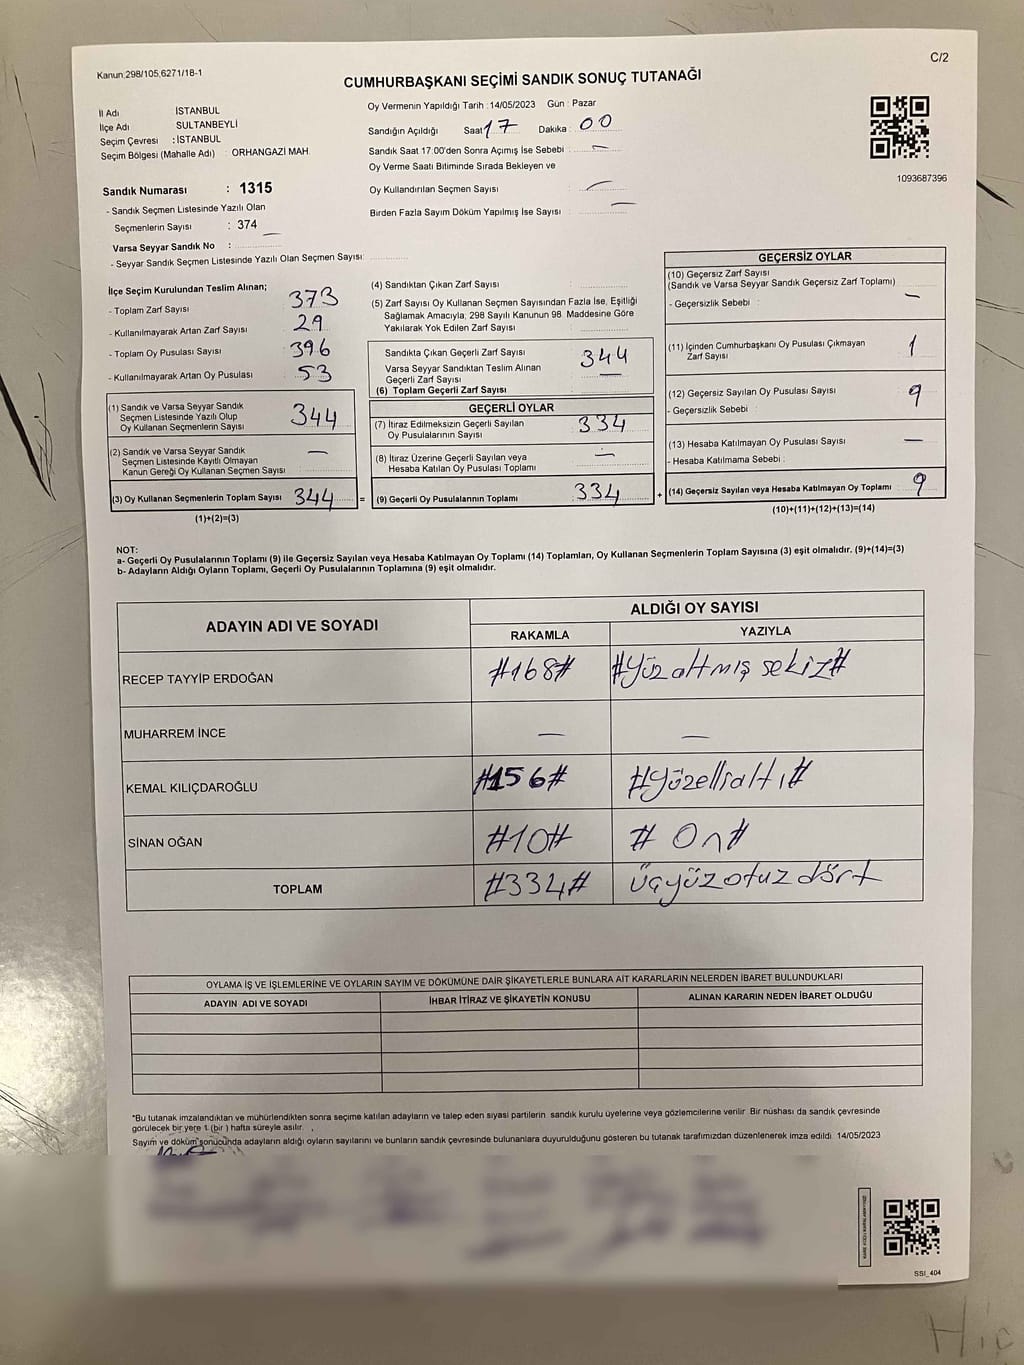 Kanun:298/105,6271/18-1
C/2
CUMHURBAŞKANI SEÇİMİ SANDIK SONUÇ TUTANAĞI
İl Adı İSTANBUL
İlçe Adı SULTANBEYLİ
Seçim Çevresi : İSTANBUL
Seçim Bölgesi (Mahalle Adı) : ORHANGAZİ MAH.
Sandık Numarası : 1315
- Sandık Seçmen Listesinde Yazılı Olan
Seçmenlerin Sayısı : 374
Varsa Seyyar Sandık No :
- Seyyar Sandık Seçmen Listesinde Yazılı Olan Seçmen Sayısı:
Oy Vermenin Yapıldığı Tarih : 14/05/2023 Gün : Pazar
Sandığın Açıldığı Saat 17 Dakika : 00
Sandık Saat 17:00'den Sonra Açımış İse Sebebi : —
Oy Verme Saati Bitiminde Sırada Bekleyen ve
Oy Kullandırılan Seçmen Sayısı : —
Birden Fazla Sayım Döküm Yapılmış İse Sayısı : —
1093687396
İlçe Seçim Kurulundan Teslim Alınan;
- Toplam Zarf Sayısı 373
- Kullanılmayarak Artan Zarf Sayısı 29
- Toplam Oy Pusulası Sayısı 396
- Kullanılmayarak Artan Oy Pusulası 53
(1) Sandık ve Varsa Seyyar Sandık
Seçmen Listesinde Yazılı Olup
Oy Kullanan Seçmenlerin Sayısı 344
(2) Sandık ve Varsa Seyyar Sandık
Seçmen Listesinde Kayıtlı Olmayan
Kanun Gereği Oy Kullanan Seçmen Sayısı —
(3) Oy Kullanan Seçmenlerin Toplam Sayısı 344 =
(1)+(2)=(3)
(4) Sandıktan Çıkan Zarf Sayısı
(5) Zarf Sayısı Oy Kullanan Seçmen Sayısından Fazla İse, Eşitliği
Sağlamak Amacıyla, 298 Sayılı Kanunun 98. Maddesine Göre
Yakılarak Yok Edilen Zarf Sayısı :
Sandıkta Çıkan Geçerli Zarf Sayısı 344
Varsa Seyyar Sandıktan Teslim Alınan
Geçerli Zarf Sayısı —
(6) Toplam Geçerli Zarf Sayısı
GEÇERLİ OYLAR
(7) İtiraz Edilmeksizin Geçerli Sayılan
Oy Pusulalarının Sayısı 334
(8) İtiraz Üzerine Geçerli Sayılan veya
Hesaba Katılan Oy Pusulası Toplamı : —
(9) Geçerli Oy Pusulalarının Toplamı 334 +
GEÇERSİZ OYLAR
(10) Geçersiz Zarf Sayısı
(Sandık ve Varsa Seyyar Sandık Geçersiz Zarf Toplamı)
- Geçersizlik Sebebi : —
(11) İçinden Cumhurbaşkanı Oy Pusulası Çıkmayan
Zarf Sayısı 1
(12) Geçersiz Sayılan Oy Pusulası Sayısı 9
- Geçersizlik Sebebi :
(13) Hesaba Katılmayan Oy Pusulası Sayısı —
- Hesaba Katılmama Sebebi :
(14) Geçersiz Sayılan veya Hesaba Katılmayan Oy Toplamı 9
(10)+(11)+(12)+(13)=(14)
NOT:
a- Geçerli Oy Pusulalarının Toplamı (9) ile Geçersiz Sayılan veya Hesaba Katılmayan Oy Toplamı (14) Toplamları, Oy Kullanan Seçmenlerin Toplam Sayısına (3) eşit olmalıdır. (9)+(14)=(3)
b- Adayların Aldığı Oyların Toplamı, Geçerli Oy Pusulalarının Toplamına (9) eşit olmalıdır.
ADAYIN ADI VE SOYADI
ALDIĞI OY SAYISI
RAKAMLA YAZIYLA
RECEP TAYYİP ERDOĞAN #168# #Yüz altmış sekiz#
MUHARREM İNCE — —
KEMAL KILIÇDAROĞLU #156# #Yüzellialtı#
SİNAN OĞAN #10# # On#
TOPLAM #334# üçyüzotuz dört
OYLAMA İŞ VE İŞLEMLERİNE VE OYLARIN SAYIM VE DÖKÜMÜNE DAİR ŞİKAYETLERLE BUNLARA AİT KARARLARIN NELERDEN İBARET BULUNDUKLARI
ADAYIN ADI VE SOYADI İHBAR İTİRAZ VE ŞİKAYETİN KONUSU ALINAN KARARIN NEDEN İBARET OLDUĞU
*Bu tutanak imzalandıktan ve mühürlendikten sonra seçime katılan adayların ve talep eden siyasi partilerin sandık kurulu üyelerine veya gözlemcilerine verilir. Bir nüshası da sandık çevresinde
görülecek bir yere 1 (bir) hafta süreyle asılır.
Sayım ve döküm sonucunda adayların aldığı oyların sayılarını ve bunların sandık çevresinde bulunanlara duyurulduğunu gösteren bu tutanak tarafımızdan düzenlenerek imza edildi. 14/05/2023
SSI_404